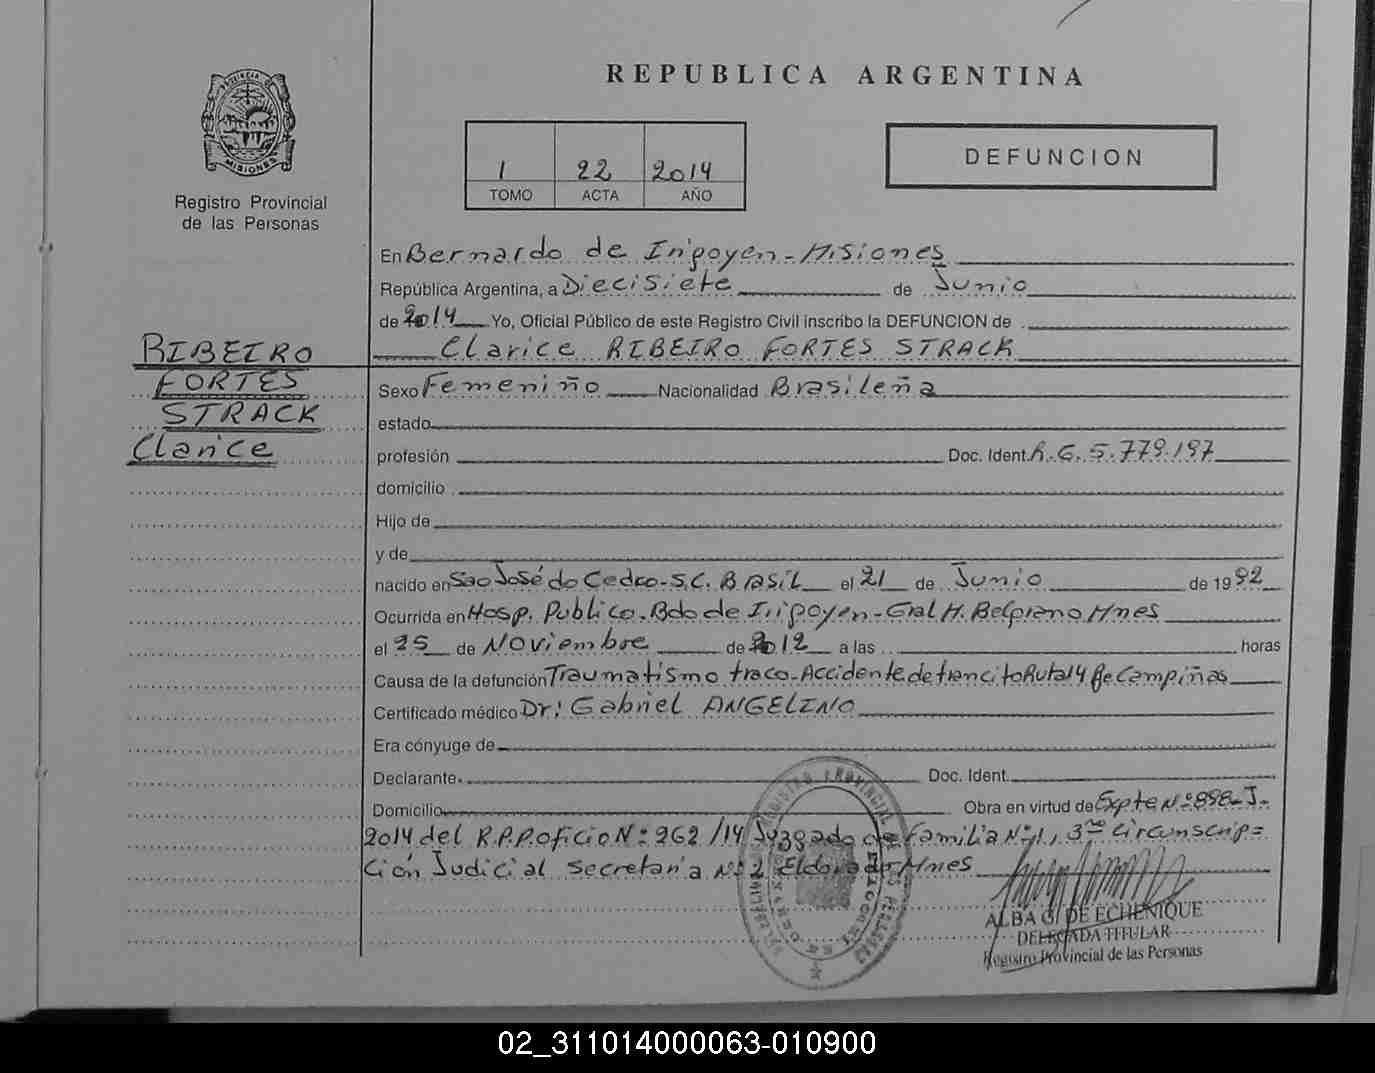 REPUBLICA ARGENTINA
PROVINCIA DE
MISIONES
Registro Provincial
de las Personas
1 22 2014
TOMO ACTA AÑO
DEFUNCION
En Bernardo de Irigoyen - Misiones
República Argentina, a Diecisiete de Junio
de 2014 Yo, Oficial Público de este Registro Civil inscribo la DEFUNCION de
Clarice RIBEIRO FORTES STRACK
RIBEIRO
FORTES
STRACK
Clarice
Sexo Femeniño Nacionalidad Brasileña
estado
profesión Doc. Ident. R.G. 5.779.197
domicilio
Hijo de
y de
nacido en Sao José do Cedro - S.C. BRASIL el 21 de Junio de 1992
Ocurrida en Hosp. Publico. Bdo de Irigoyen - Gral M. Belgrano Mnes
el 25 de Noviembre de 2012 a las horas
Causa de la defunción Traumatismo traco - Accidente de trancito Ruta 14 Campiñas
Certificado médico Dr: Gabriel ANGELINO
Era cónyuge de
Declarante Doc. Ident.
Domicilio Obra en virtud de Expte Nº 898-J-
2014 del R.P.P oficio Nº 262/14 Juzgado de Familia Nº 1, 3ra Circunscrip=
ción Judicial Secretaria Nº 2 Eldorado Mnes
ALBA G. DE ECHENIQUE
DELEGADA TITULAR
Registro Provincial de las Personas
02_311014000063-010900